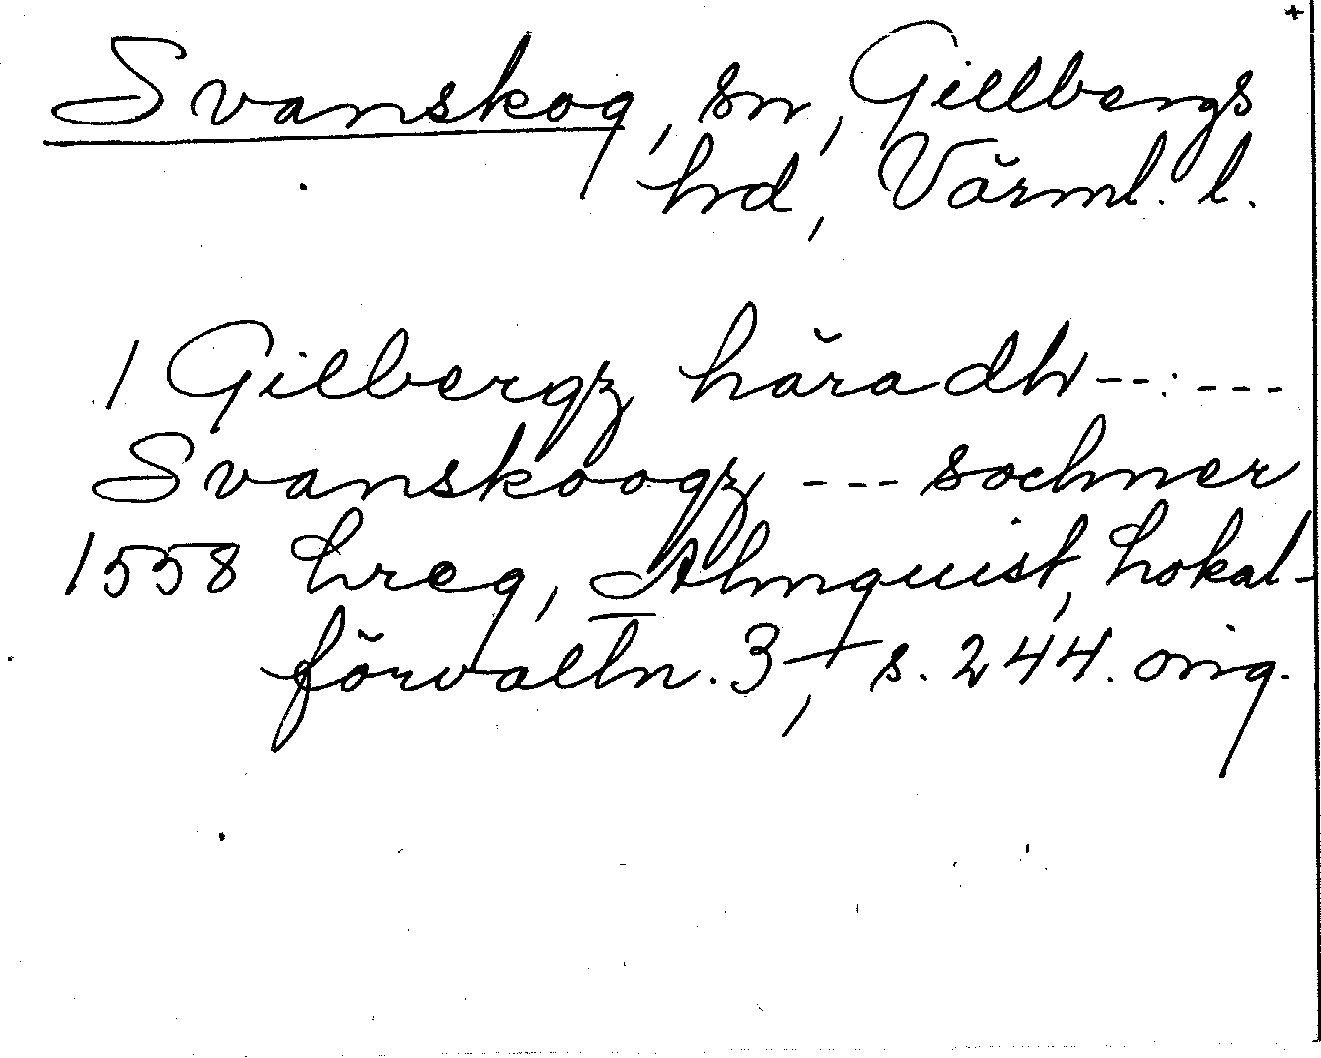 Svanskog, sn, Gillbergs
hd, Värml. l.
I Gilbergz häradh --:---
Svanskoogz --- sochner
1558 hreg, Almquist, Lokal-
förvaltn. 3, s. 244. orig.